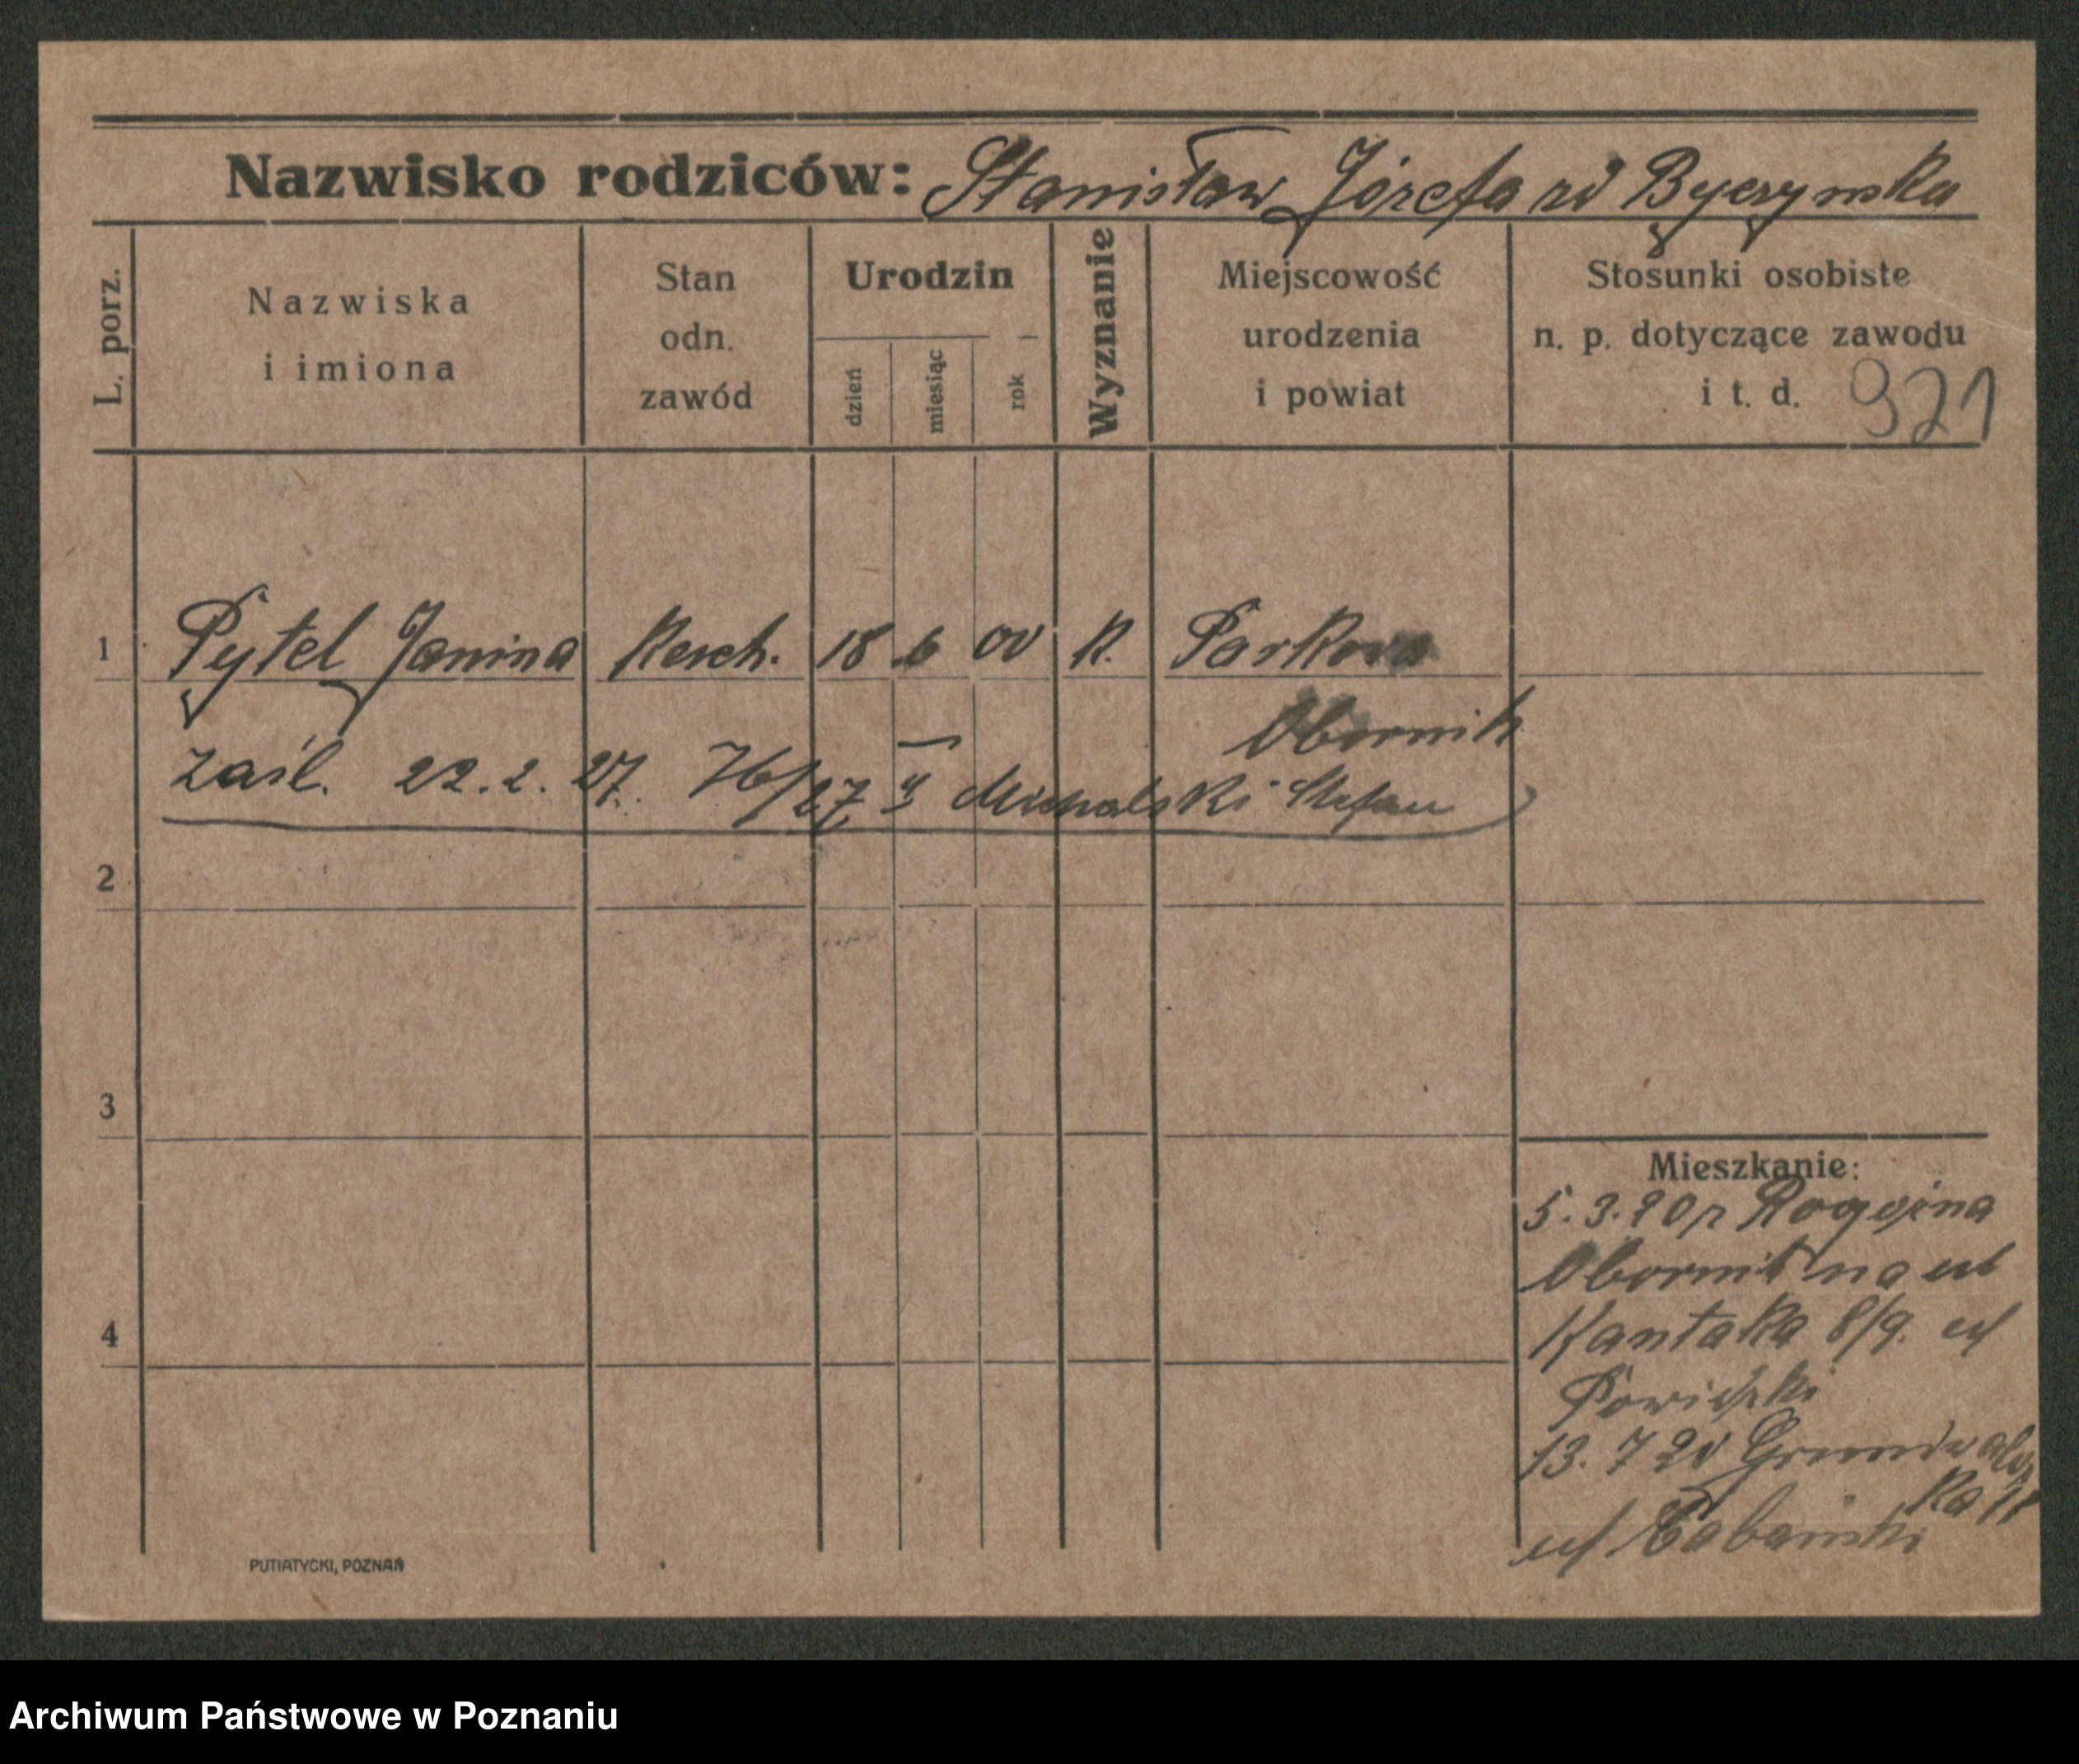 Nazwisko rodziców: Stanisław Józefa zd Byczyńska
L. porz.
Nazwiska
i imiona
Stan
odn.
zawód
Urodzin
dzień
miesiąc
rok
Wyznanie
Miejscowość
urodzenia
i powiat
Stosunki osobiste
n. p. dotyczące zawodu
i t. d.
921
1 Pytel Janina 18 6 00 K. Parkowo
Obornik
zaśl. 22.2.27. 76/27 Michalski Stefan
2
3
4
Mieszkanie:
5.3.20 z Rogoźna
Obornik na ul
Kantaka 8/9. u/
13.7 20 Grunwaldz
ka
u/
PUTIATYCKI, POZNAŃ
Archiwum Państwowe w Poznaniu